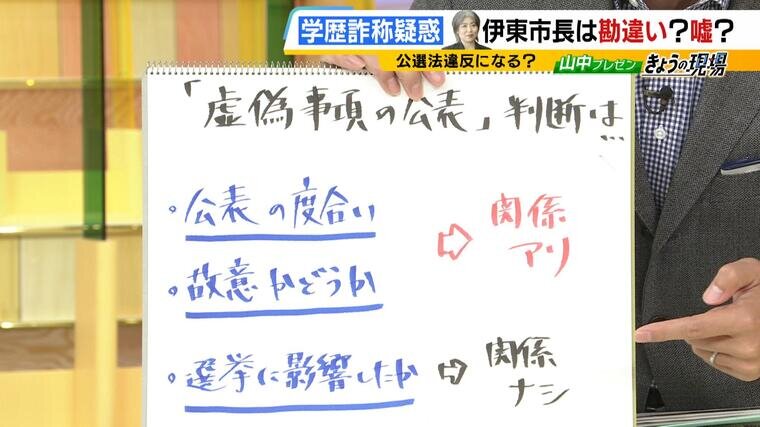 学歴詐称疑惑
伊東市長は勘違い?嘘?
公選法違反になる?
山中プレゼン
きょうの現場
「虚偽事項の公表」判断は…
・公表の度合い
・故意かどうか
⇨ 関係アリ
・選挙に影響したか
⇨ 関係ナシ